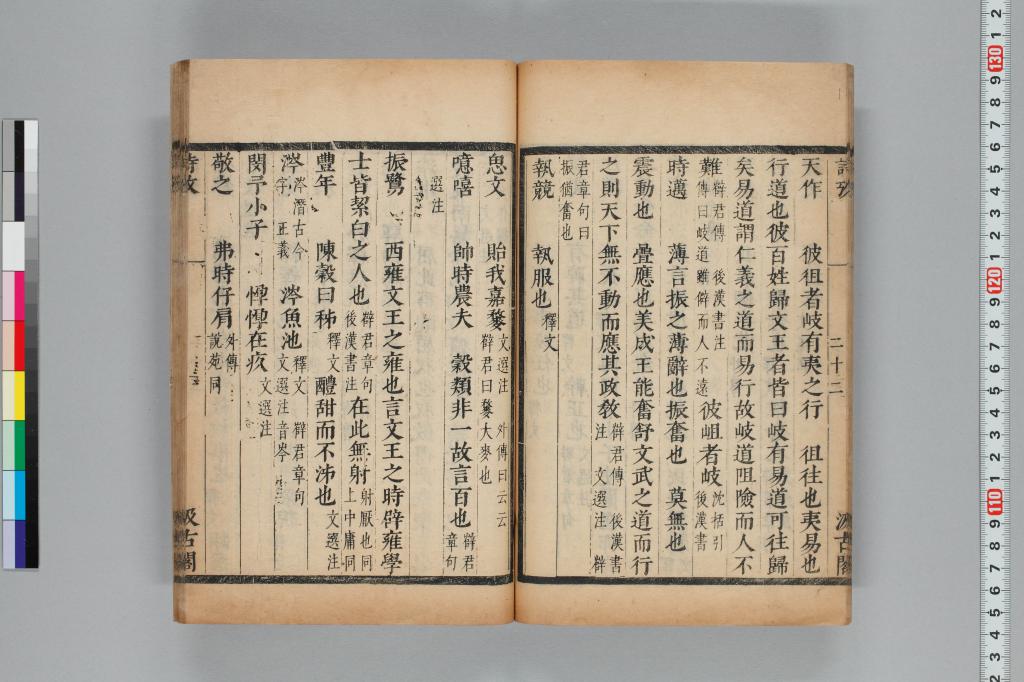 天作　彼徂者岐有夷之行　徂往也夷易也
行道也彼百姓歸文王者皆曰岐有易道可往歸
矣易道謂仁義之道而易行故岐道阻險而人不
難 薛君傳　後漢書注
傳曰岐道雖僻而人不遠 彼岨者岐 沈括引
後漢書
時邁　薄言振之薄辭也振奮也　莫無也
震動也　疊應也美成王能奮舒文武之道而行
之則天下無不動而應其政教 薛君傳　後漢書
注　文選注　薛
君章句曰
振猶奮也
執競　執服也 釋文
思文　貽我嘉䅘 文選注　外傳曰云云
薛君曰䅘大麥也
噫嘻　帥時農夫　穀類非一故言百也 薛君
章句
選注
振鷺　西雍文王之雍也言文王之時辟雍學
士皆絜白之人也 薛君章句
後漢書注 在此無射 射厭也同
上中庸同
豐年　陳穀曰秭 釋文 醴甜而不泲也 文選注
涔 涔潛古今
字　正義 涔魚池 釋文　薛君章句
文選注音岑
閔予小子　惸惸在疚 文選注
敬之　弗時仔肩 外傳
說苑同
詩攷
汲古閣
詩攷
二十二
汲古閣
130
120
110